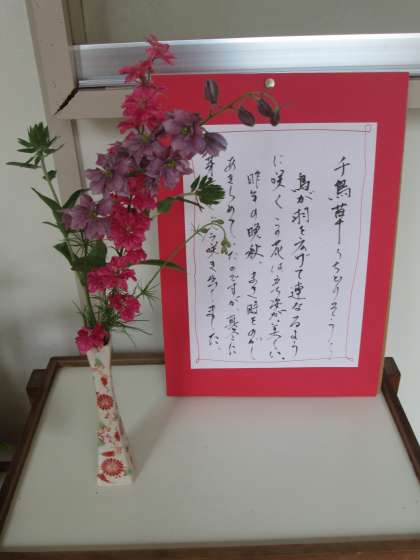 千鳥草 ～ちどりそう～
鳥が羽を広げて連なるよう
に咲くこの花は立ち姿が美しい。
昨年の晩秋、まき時をのがし
あきらめていたのですが 見ごとに
芽 咲き出しました。